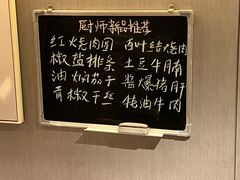 厨师新品推荐
红烧肉圆 百叶结烧肉
椒盐排条 土豆牛腩
油焖茄子 酱爆猪肝
青椒干丝 蚝油牛肉